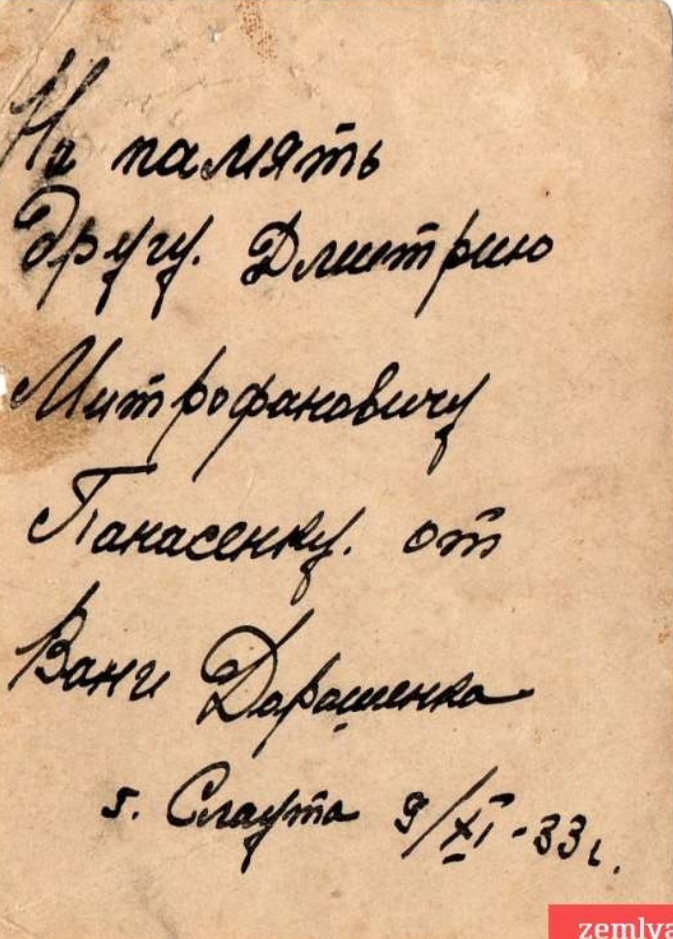 На память
другу. Дмитрию
Митрофановичу
Панасенку. от
Вани Дарашенка
г. Слаута 9/XI-33г.
zemlya